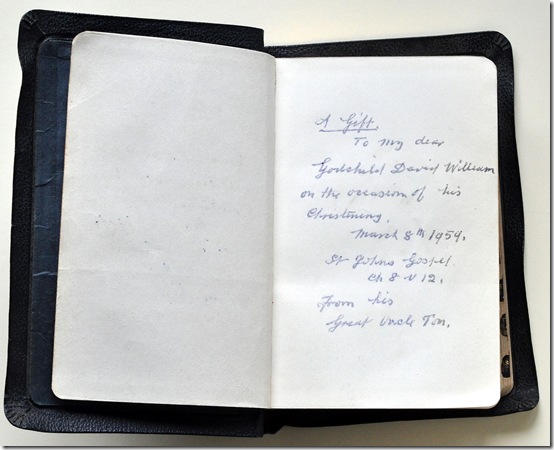 A Gift.
To my dear
Godchild David William
on the occasion of his
Christening.
March 8th 1959.
St Johns Gospel.
Ch 8 V 12.
From his
Great Uncle Tom.